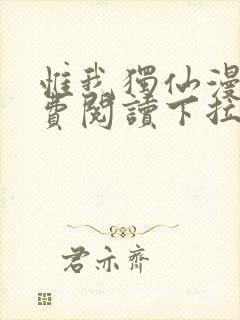 惟我獨仙漫
費閱讀下拉
君亦齊